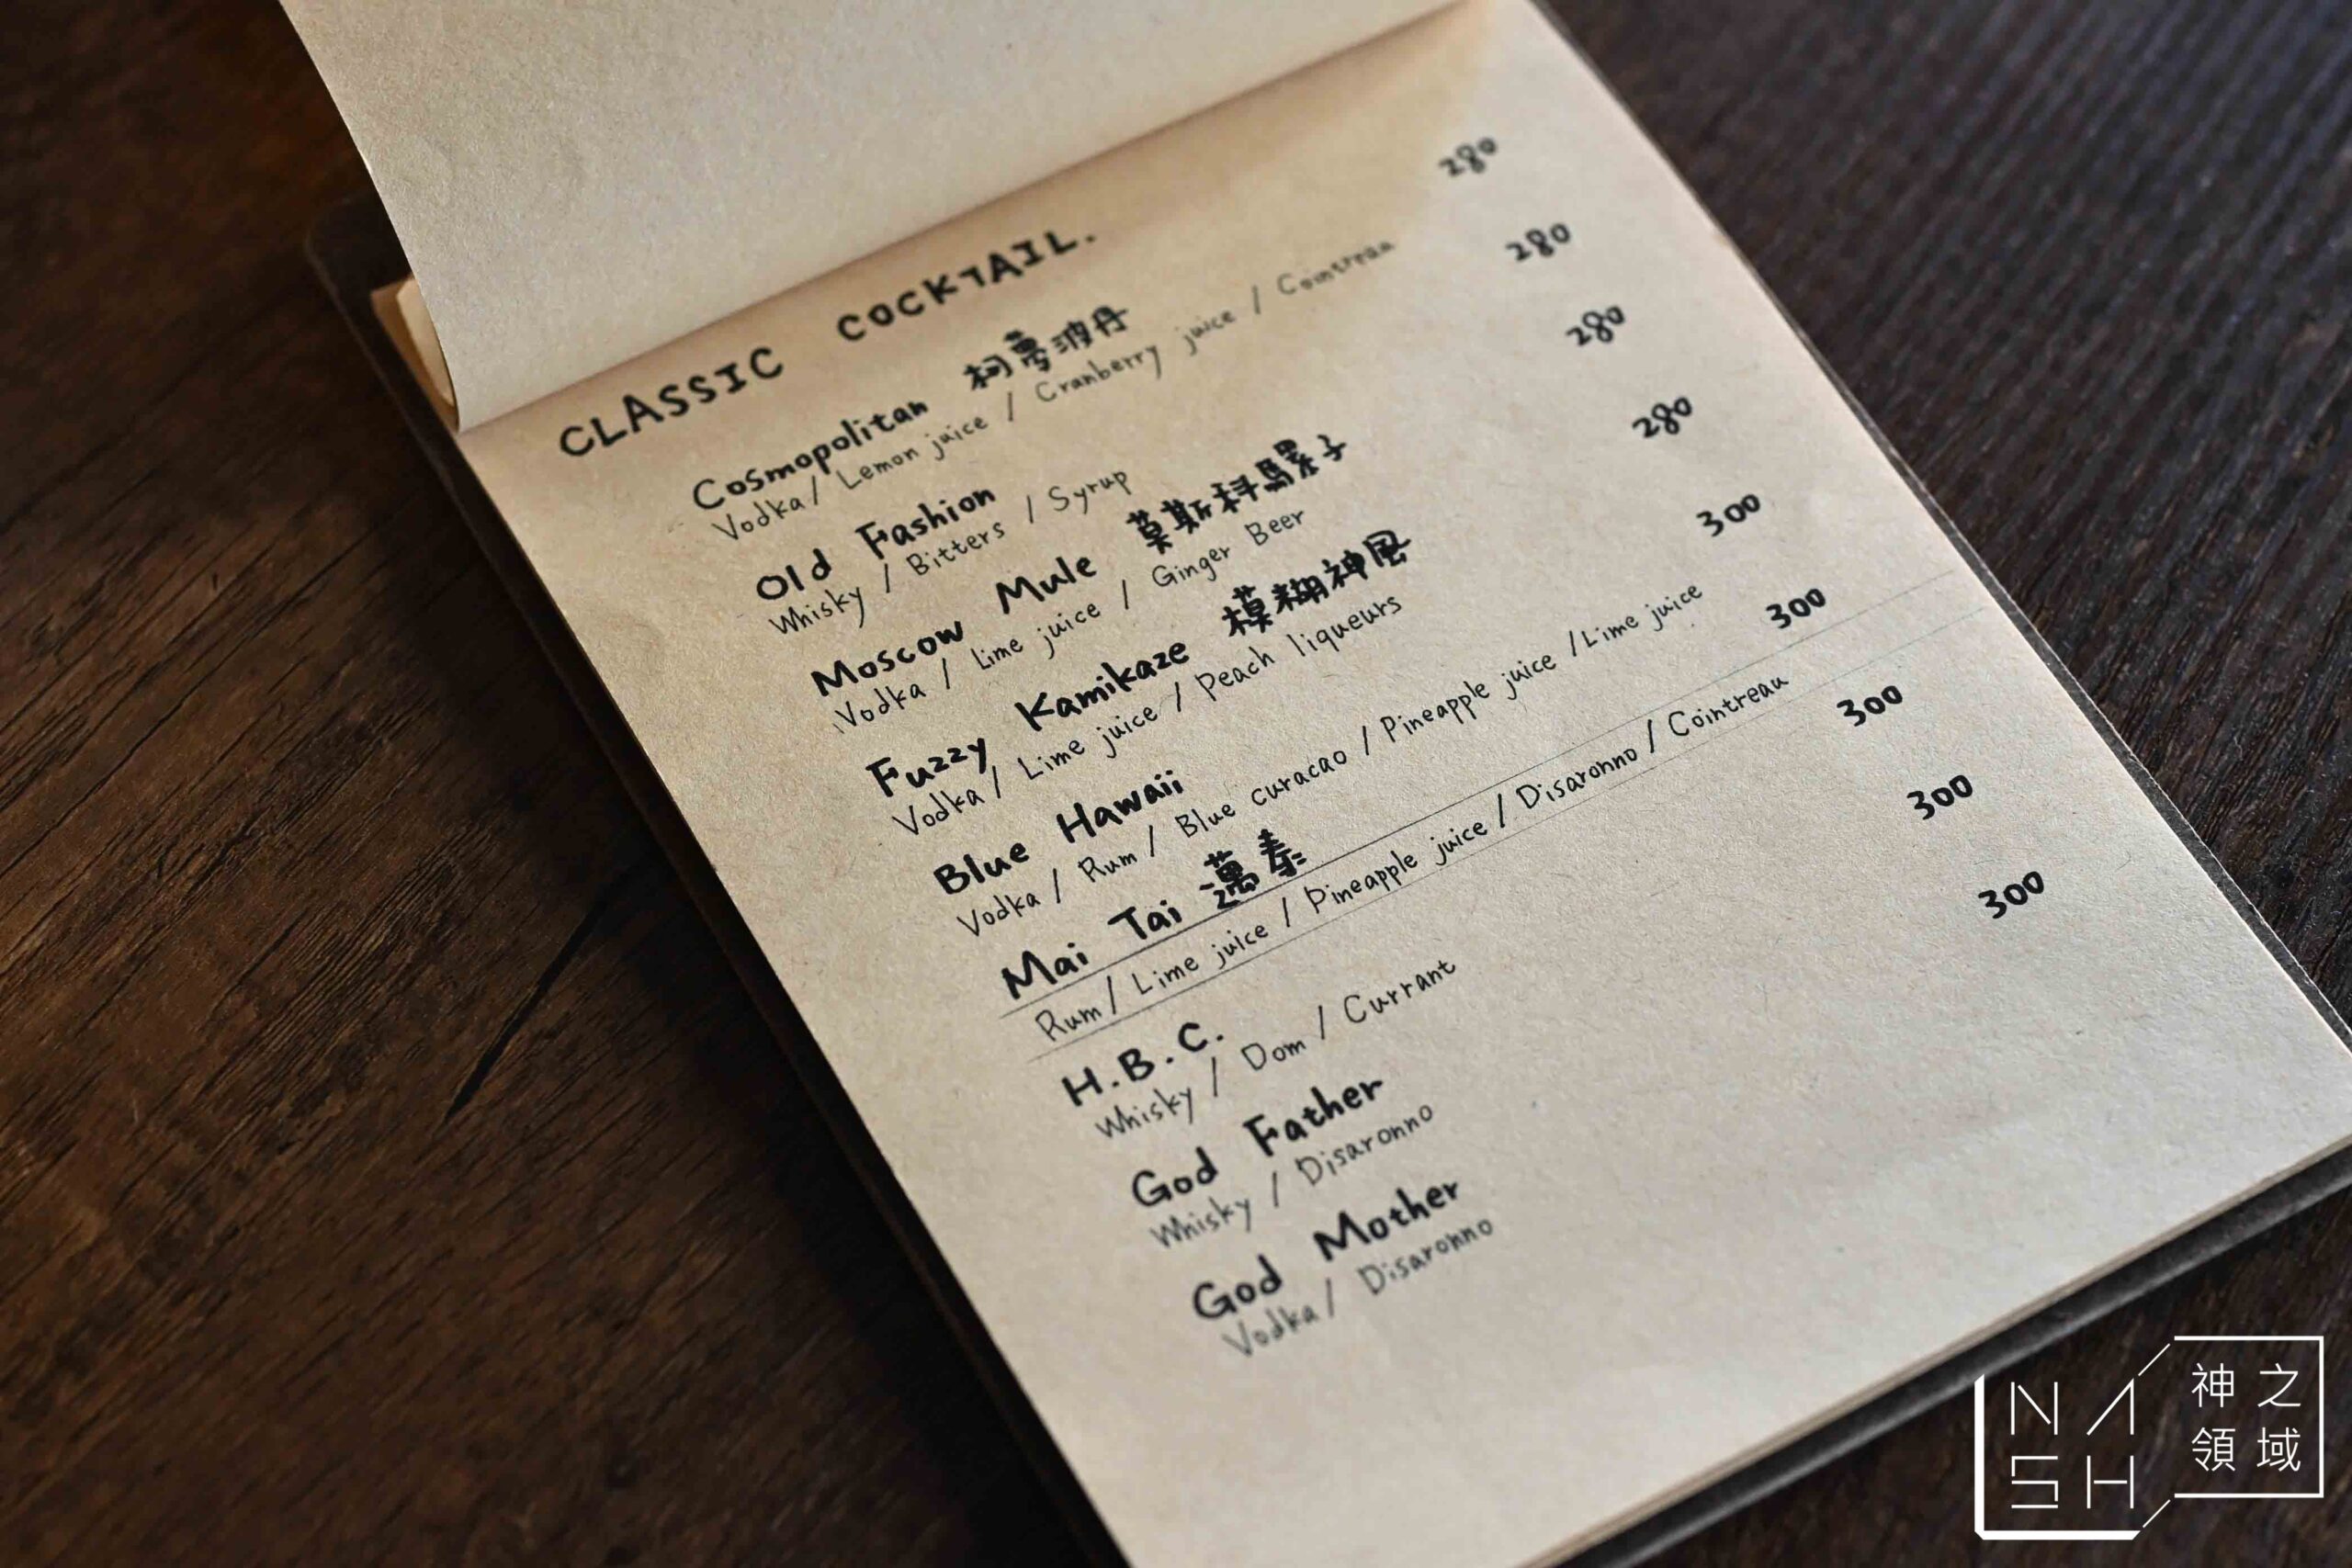 CLASSIC COCKTAIL.
Cosmopolitan 柯夢波丹 280
Vodka / Lemon juice / Cranberry juice / Cointreau
Old Fashion 280
Whisky / Bitters / Syrup
Moscow Mule 莫斯科騾子 280
Vodka / Lime juice / Ginger Beer
Fuzzy Kamikaze 模糊神風 280
Vodka / Lime juice / Peach liqueurs
Blue Hawaii 300
Vodka / Rum / Blue curacao / Pineapple juice / Lime juice
Mai Tai 邁泰 300
Rum / Lime juice / Pineapple juice / Disaronno / Cointreau
H.B.C. 300
Whisky / Dom / Currant
God Father 300
Whisky / Disaronno
God Mother 300
Vodka / Disaronno
NASH
神之
領域